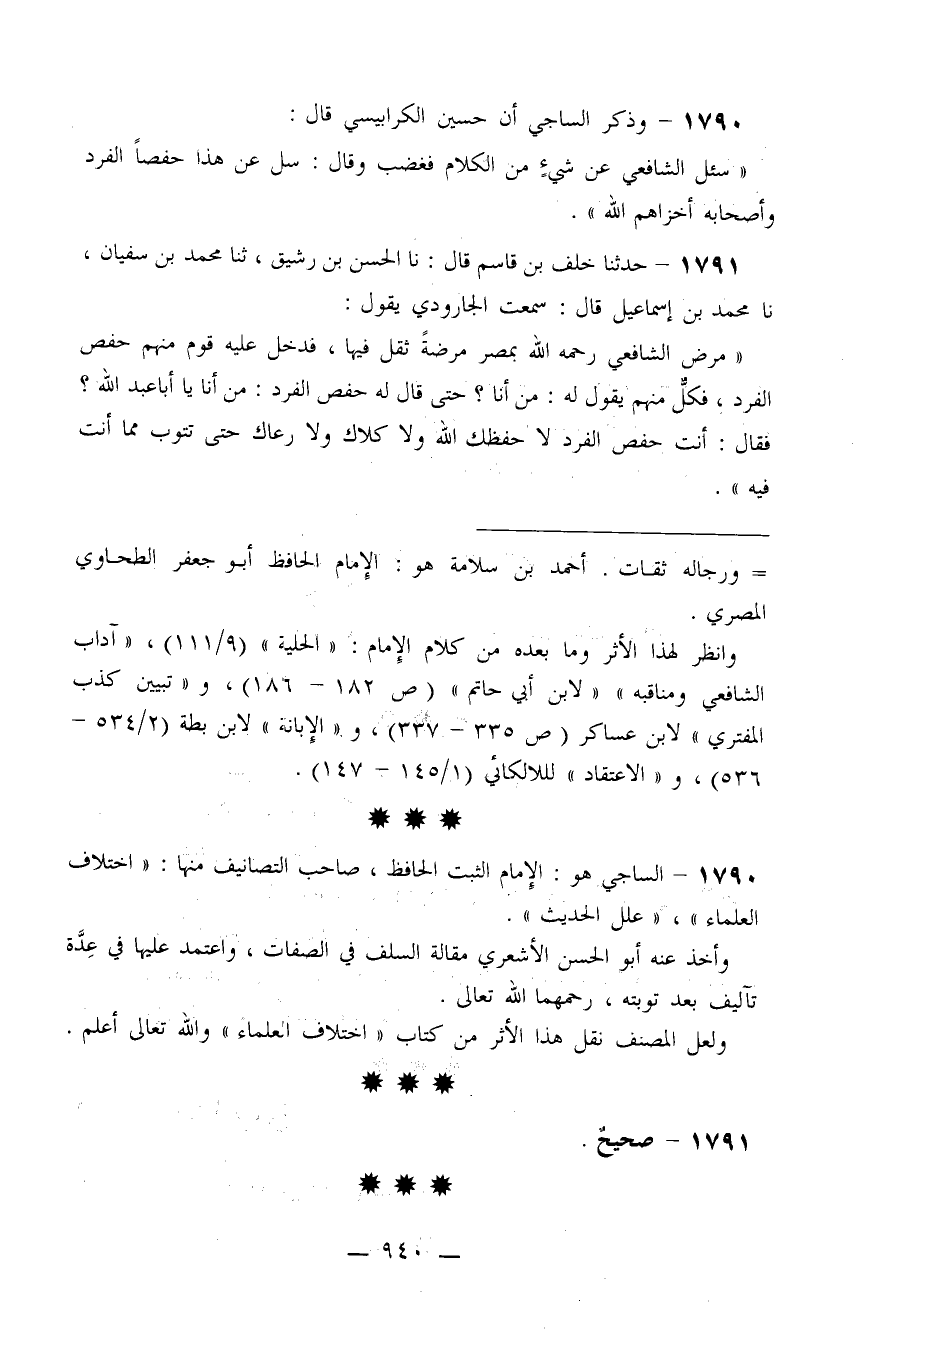 ١٧٩٠ – وذكر الساجي أن حسين الكرابيسي قال :
« سئل الشافعي عن شيءٍ من الكلام فغضب وقال : سل عن هذا حفصاً الفرد
وأصحابه أخزاهم الله » .
١٧٩١ – حدثنا خلف بن قاسم قال : نا الحسن بن رشيق ، ثنا محمد بن سفيان ،
نا محمد بن إسماعيل قال : سمعت الجارودي يقول :
« مرض الشافعي رحمه الله بمصر مرضةً ثقل فيها ، فدخل عليه قوم منهم حفص
الفرد ، فكلٌّ منهم يقول له : من أنا ؟ حتى قال له حفص الفرد : من أنا يا أباعبد الله ؟
فقال : أنت حفص الفرد لا حفظك الله ولا كلاك ولا رعاك حتى تتوب مما أنت
فيه » .
= ورجاله ثقات . أحمد بن سلامة هو : الإمام الحافظ أبو جعفر الطحاوي
المصري .
وانظر لهذا الأثر وما بعده من كلام الإمام : « الحلية » (١١١/٩) ، « آداب
الشافعي ومناقبه » « لابن أبي حاتم » ( ص ١٨٢ – ١٨٦) ، و « تبيين كذب
المفتري » لابن عساكر ( ص ٣٣٥ – ٣٣٧) ، و « الإبانة » لابن بطة (٥٣٤/٢ –
٥٣٦) ، و « الاعتقاد » للالكائي (١٤٥/١ – ١٤٧) .
١٧٩٠ – الساجي هو : الإمام الثبت الحافظ ، صاحب التصانيف منها : « اختلاف
العلماء » ، « علل الحديث » .
وأخذ عنه أبو الحسن الأشعري مقالة السلف في الصفات ، واعتمد عليها في عِدَّة
تآليف بعد توبته ، رحمهما الله تعالى .
ولعل المصنف نقل هذا الأثر من كتاب « اختلاف العلماء » والله تعالى أعلم .
١٧٩١ – صحيحٌ .
– ٩٤٠ –